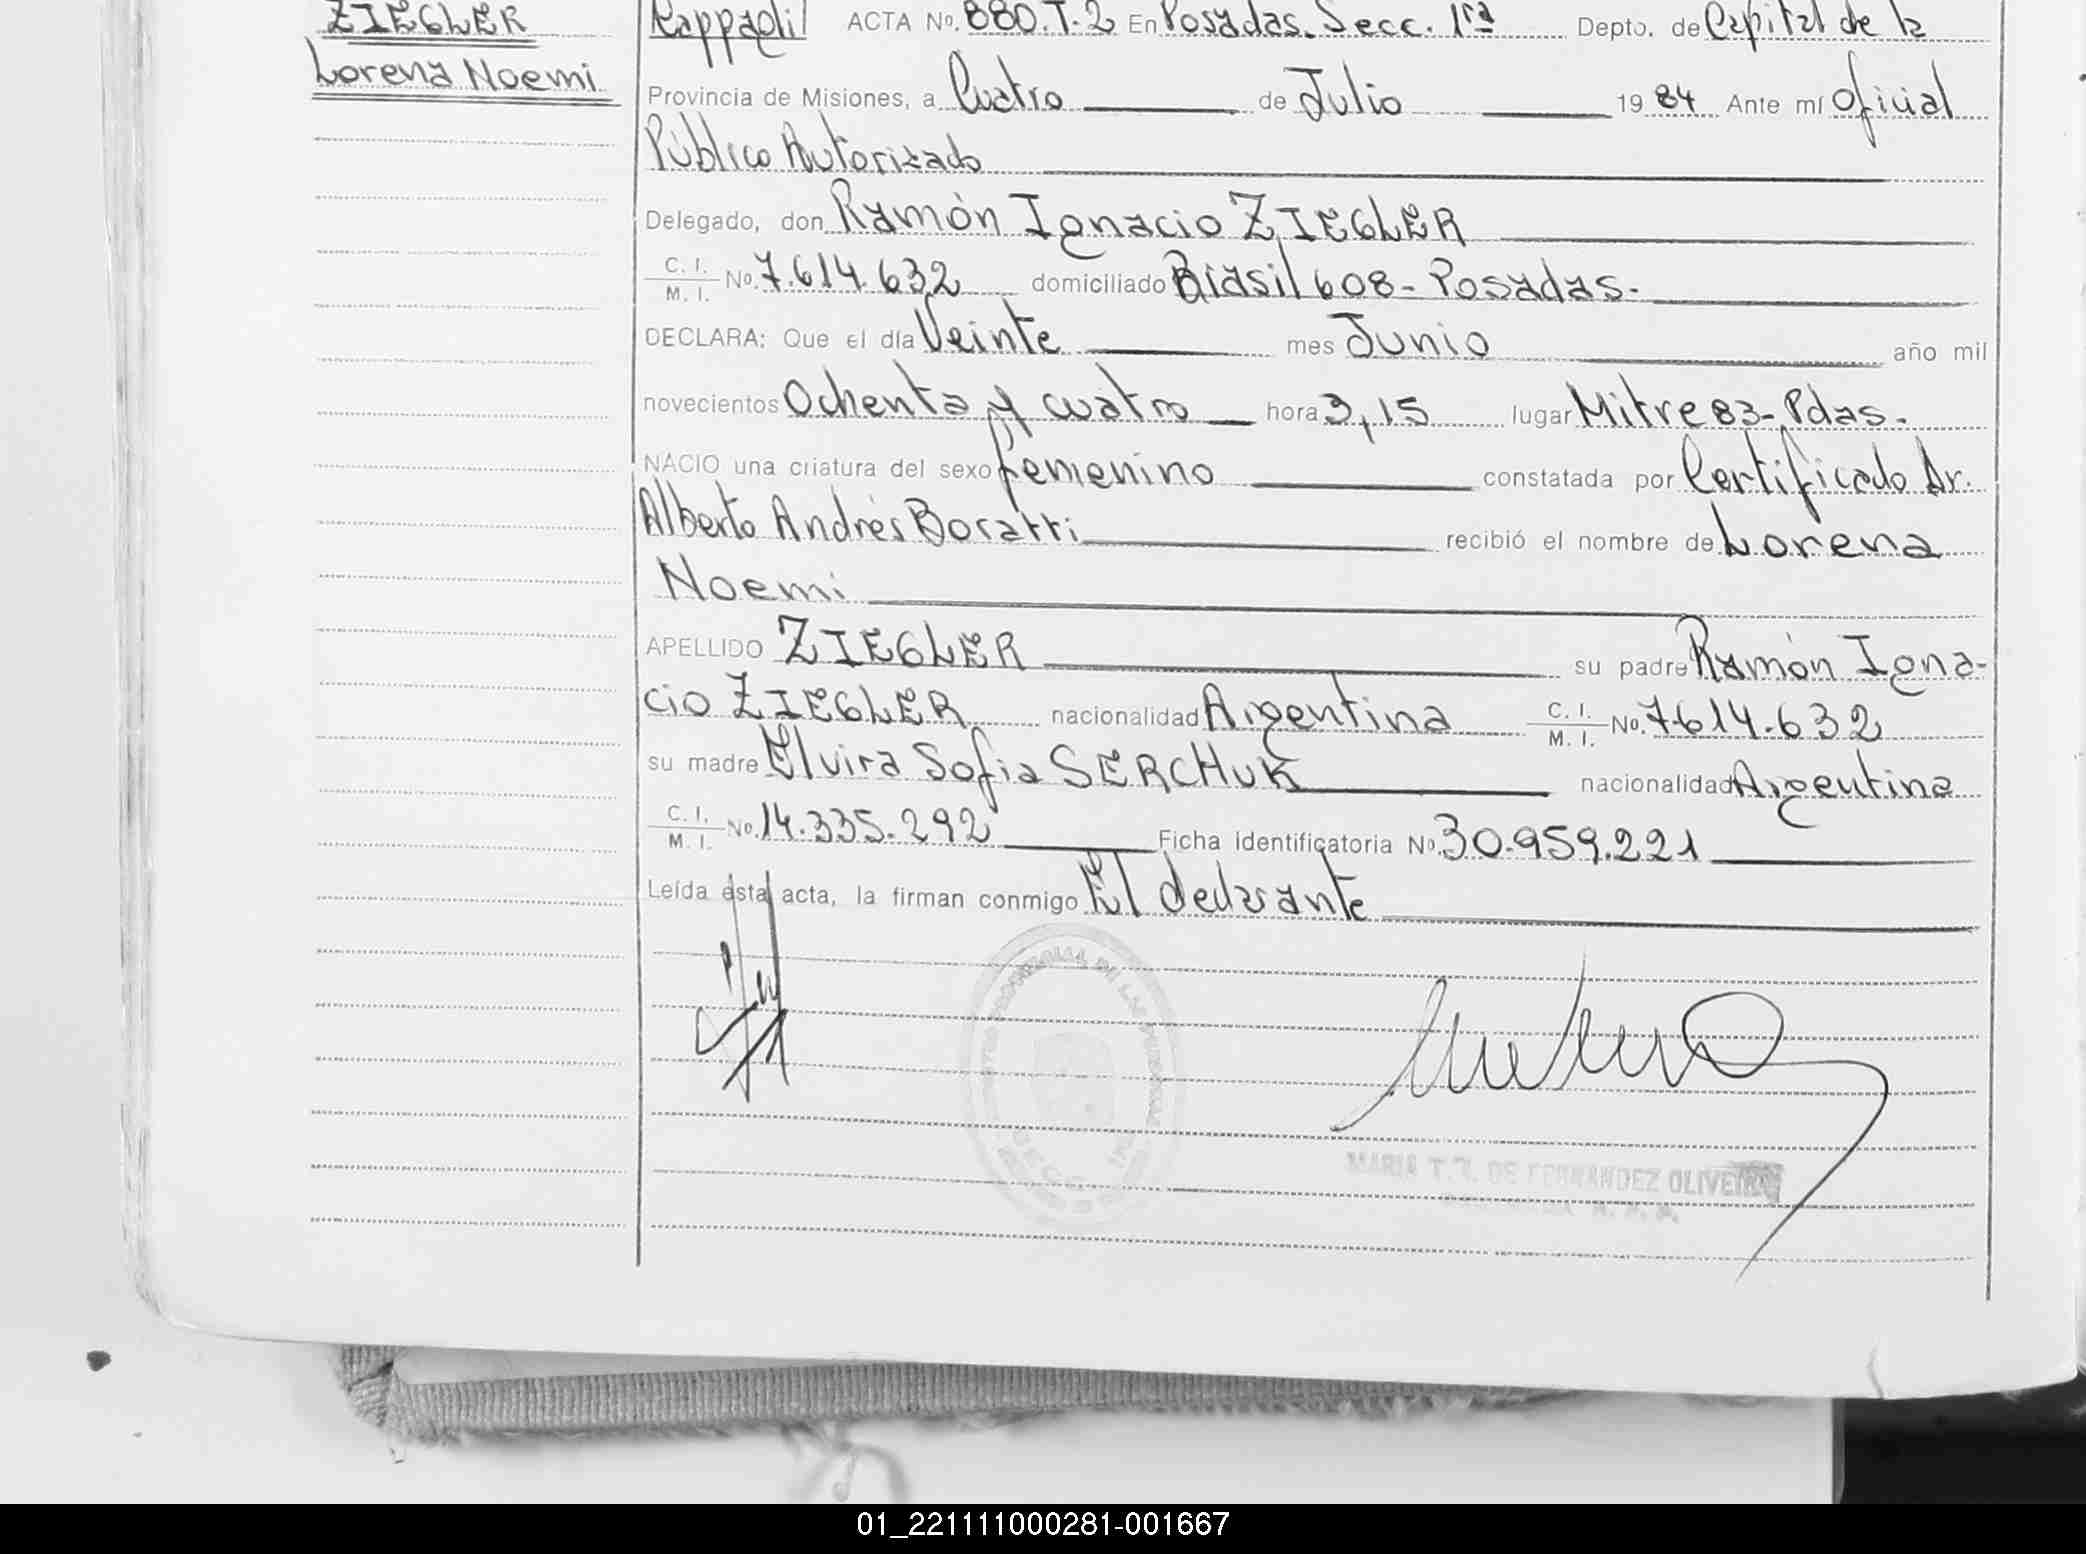 ZIEGLER
Lorena Noemi
ACTA No. 880.T.2 En Posadas. Secc. 1ra Depto. de Capital de la
Provincia de Misiones, a Cuatro de Julio 1984 Ante mí Oficial
Público Autorizado
Delegado, don Ramón Ignacio ZIEGLER
C. I.
M. I. No. 7.614.632 domiciliado Brasil 608- Posadas.
DECLARA: Que el día Veinte mes Junio año mil
novecientos Ochenta y cuatro hora 3,15 lugar Mitre 83- Pdas.
NACIO una criatura del sexo femenino constatada por Certificado Dr.
Alberto Andrés recibió el nombre de Lorena
Noemi
APELLIDO ZIEGLER su padre Ramón Igna-
cio ZIEGLER nacionalidad Argentina C. I.
M. I. No. 7.614.632
su madre Elvira Sofia SERCHUK nacionalidad Argentina
C. I.
M. I. No. 14.335.292 Ficha identificatoria No. 30.959.221
Leída esta acta, la firman conmigo El declarante
MARIA T. DE FERNANDEZ
01_221111000281-001667